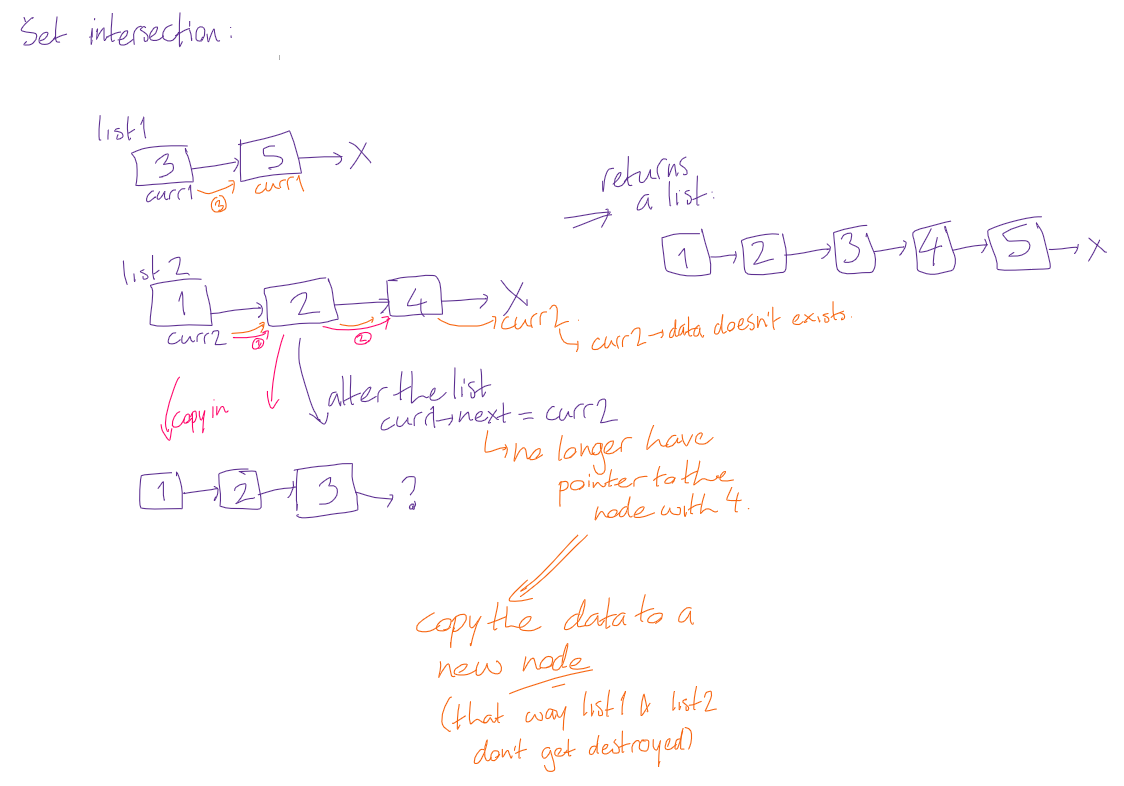 Set intersection:
list1
3 5 X
curr1 curr1
③
returns
a list:
1 2 3 4 5 X
list 2
1 2 4 X
curr2
curr2 ① ②
curr2→data doesn't exists.
alter the list
copy in
curr1→next = curr2
no longer have
pointer to the
node with 4.
1 2 3 ?
copy the data to a
new node
(that way list1 & list2
don't get destroyed)